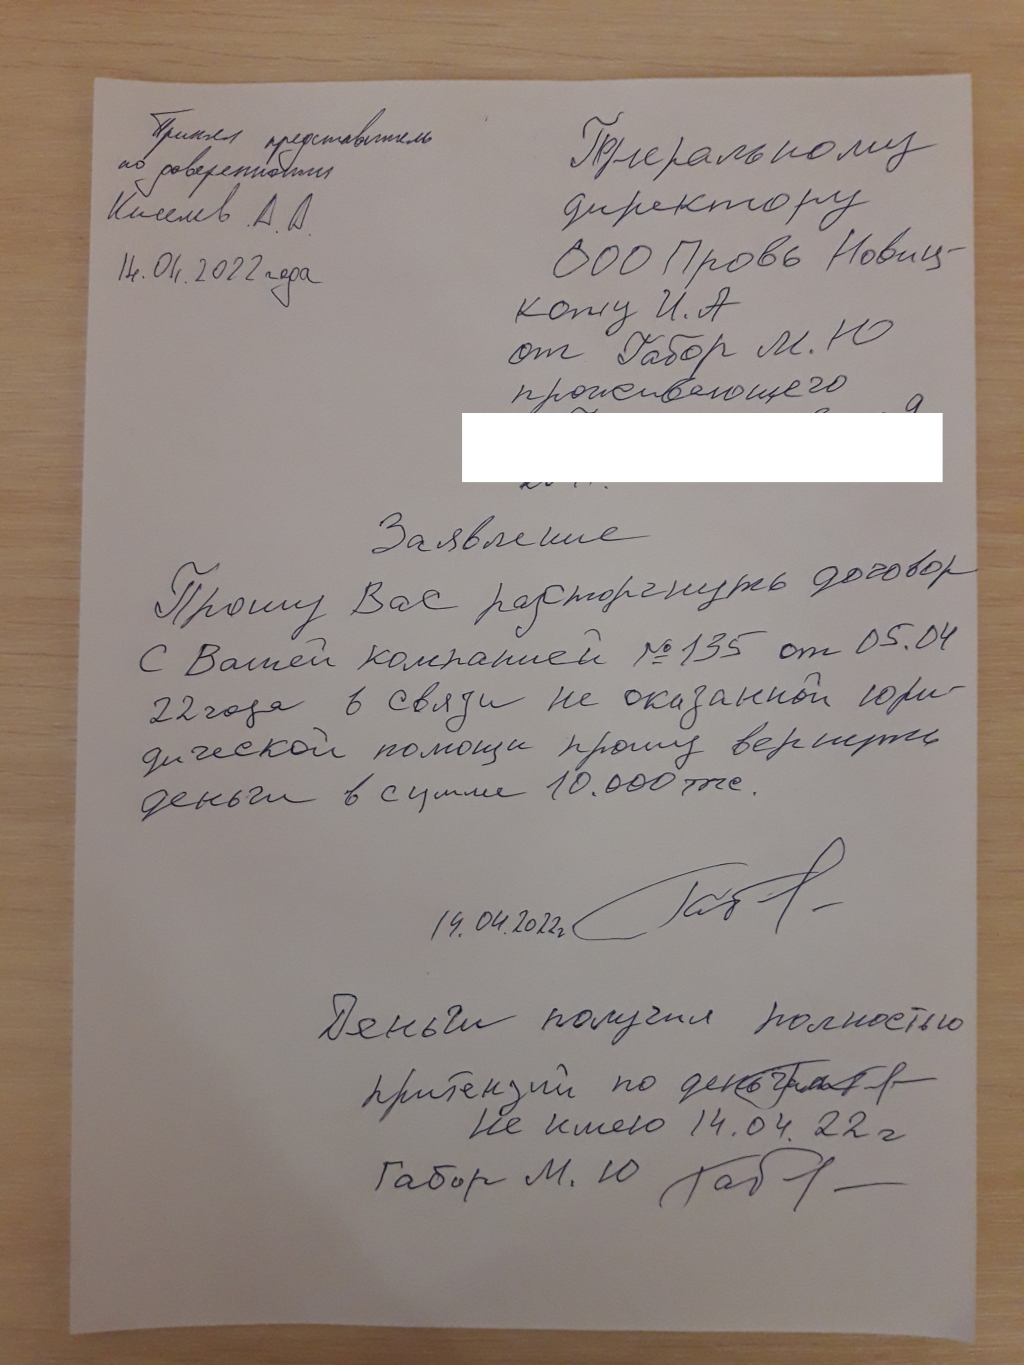 Принял представитель
по доверенности
Киселев А.А.
14.04.2022 года
Генеральному
директору
ООО Провъ Новиц-
кому И.А
от Габор М.Ю
проживающего
Заявление
Прошу Вас расторгнуть договор
с Вашей компанией №135 от 05.04
22 года в связи не оказанной юри-
дической помощи прошу вернуть
деньги в сумме 10.000 тыс.
14.04.2022г
Деньги получил полностью
притензий по деньгам
не имею 14.04.22г
Габор М.Ю Габ